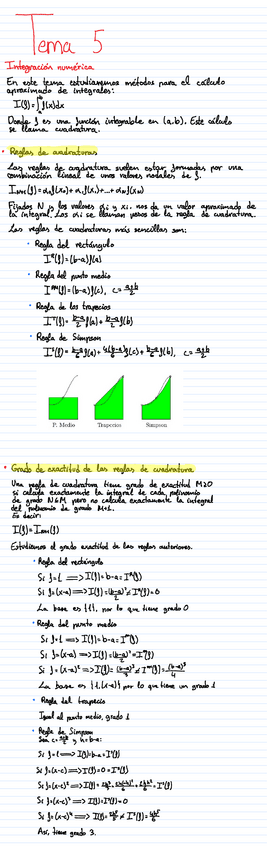 Tema 5
Integración numérica
En este tema estudiaremos métodos para el cálculo
aproximado de integrales:
I(f)=∫f(x)dx
Donde f es una función integrable en (a,b). Este cálculo
se llama cuadratura.
• Reglas de cuadraturas
Las reglas de cuadratura suelen estar formadas por una
combinación lineal de unos valores nodales de f.
(f)=α₀f(x₀)+α₁f(x₁)+...+αₙf(xₙ)
Fijados N y los valores αi y xi, nos da un valor aproximado de
la integral. Los αi se llaman pesos de la regla de cuadratura.
Las reglas de cuadraturas más sencillas son:
• Regla del rectángulo
(f)=(b-a)f(a)
• Regla del punto medio
(f)=(b-a)f(c), c=(a+b)/2
• Regla de los trapecios
(f)=(b-a)/2 f(a)+(b-a)/2 f(b)
• Regla de Simpson
(f)=(b-a)/6 f(a)+4(b-a)/6 f(c)+(b-a)/6 f(b), c=(a+b)/2
P. Medio Trapecios Simpson
• Grado de exactitud de las reglas de cuadratura
Una regla de cuadratura tiene grado de exactitud M≥0
si calcula exactamente la integral de cada polinomio
de grado N≤M pero no calcula exactamente la integral
del polinomio de grado M+1.
Es decir:
Estudiemos el grado exactitud de las reglas anteriores.
• Regla del rectángulo
Si f=1 ⟹ I(f)=b-a=
Si f=(x-a) ⟹ I(f)=(b-a)²/2 ≠ =0
La base es {1}, por lo que tiene grado 0
• Regla del punto medio
Si f=1 ⟹ I(f)=b-a=
Si f=(x-a) ⟹ I(f)=(b-a)²/2=
Si f=(x-a)² ⟹ I(f)=(b-a)³/3 ≠ =(b-a)³/4
La base es {1,(x-a)} por lo que tiene un grado 1
• Regla del trapecio
Igual al punto medio, grado 1
• Regla de Simpson
Sean c=(a+b)/2 y h=b-a:
Si f=1 ⟹ I(f)=b-a=
Si f=(x-c) ⟹ I(f)=0=
Si f=(x-c)² ⟹ I(f)=
Si f=(x-c)³ ⟹ I(f)= =0
Si f=(x-c)⁴ ⟹ I(f)=
Así, tiene grado 3.